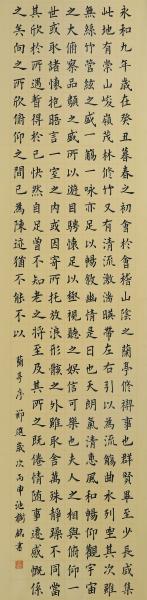 永和九年歲在癸丑暮春之初會於會稽山陰之蘭亭脩禊事也群賢畢至少長咸集
此地有崇山峻嶺茂林修竹又有清流激湍映帶左右引以為流觴曲水列坐其次雖
無絲竹管絃之盛一觴一詠亦足以暢敘幽情是日也天朗氣清惠風和暢仰觀宇宙
之大俯察品類之盛所以遊目騁懷足以極視聽之娛信可樂也夫人之相與俯仰一
世或取諸懷抱晤言一室之內或因寄所托放浪形骸之外雖取舍萬殊靜躁不同當
其欣於所遇暫得於己快然自足曾不知老之將至及其所之既倦情隨事遷感慨係
之矣向之所欣俯仰之間已為陳迹猶不能不以 蘭亭序節選歲次丙申池樹銘書